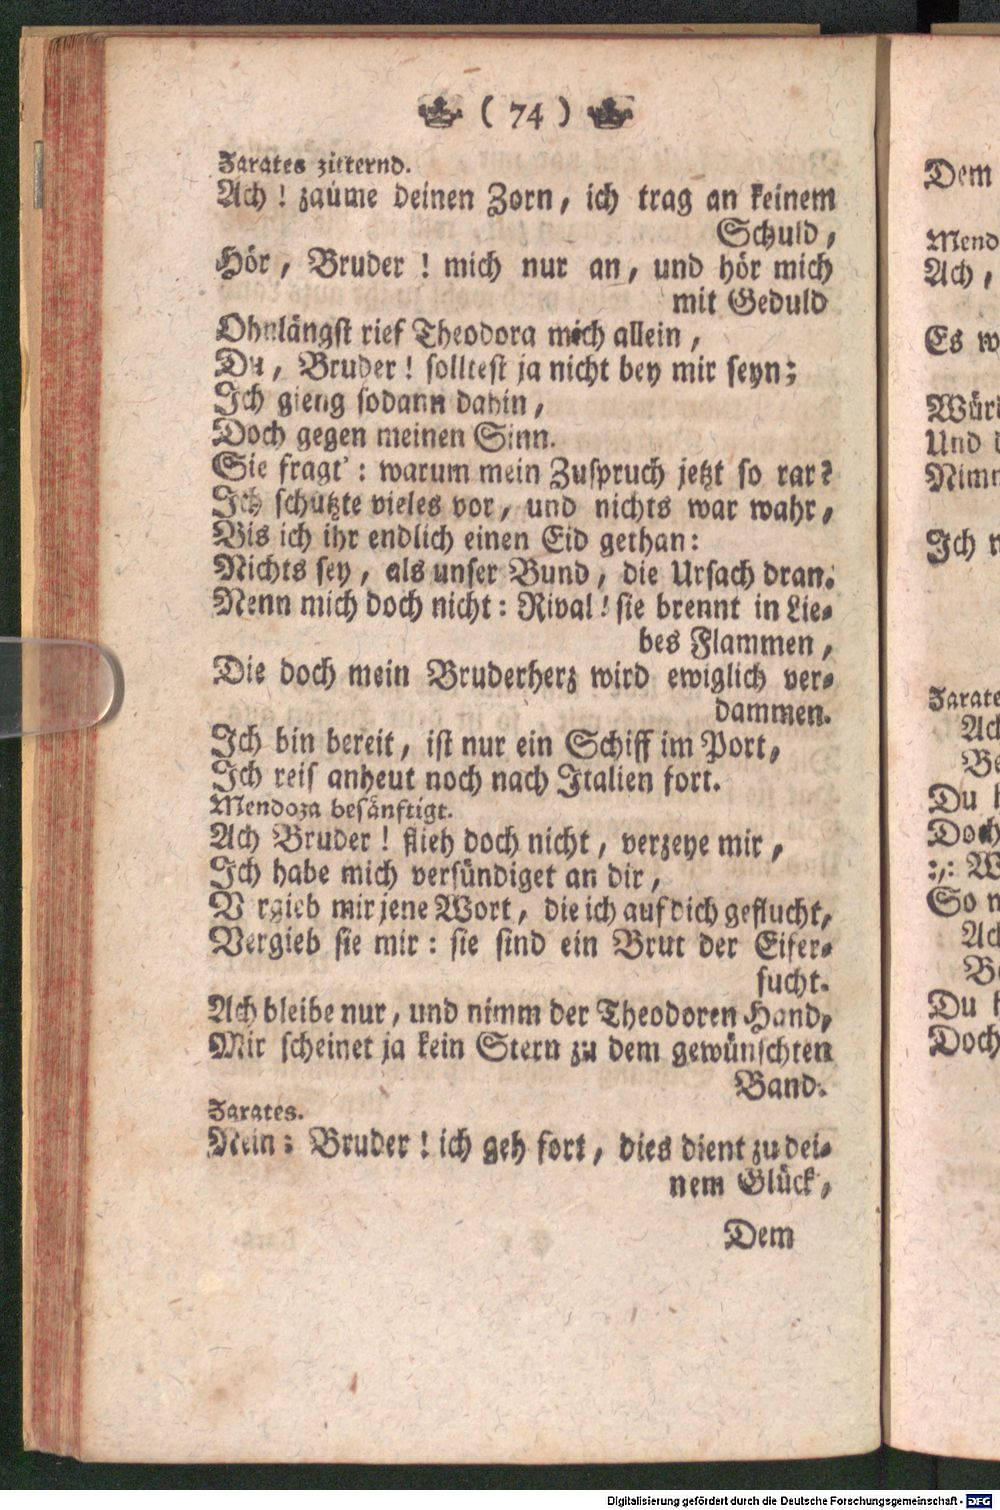 ( 74 )
Zarates zitternd.
Ach ! zaüme deinen Zorn, ich trag an keinem
Schuld,
Hör, Bruder ! mich nur an, und hör mich
mit Geduld
Ohnlängst rief Theodora mich allein,
Du, Bruder! solltest ja nicht bey mir seyn;
Ich gieng sodann dahin,
Doch gegen meinen Sinn.
Sie fragt': warum mein Zuspruch jetzt so rar?
Ich schützte vieles vor, und nichts war wahr,
Bis ich ihr endlich einen Eid gethan:
Nichts sey, als unser Bund, die Ursach dran.
Nenn mich doch nicht: Rival! sie brennt in Lie-
bes Flammen,
Die doch mein Bruderherz wird ewiglich ver-
dammen.
Ich bin bereit, ist nur ein Schiff im Port,
Ich reis anheut noch nach Italien fort.
Mendoza besänftigt.
Ach Bruder! flieh doch nicht, verzeye mir,
Ich habe mich versündiget an dir,
V rgieb mir jene Wort, die ich auf dich geflucht,
Vergieb sie mir: sie sind ein Brut der Eifer-
sucht.
Ach bleibe nur, und nimm der Theodoren Hand,
Mir scheinet ja kein Stern zu dem gewünschten
Band.
Zarates.
Nein: Bruder! ich geh fort, dies dient zu dei-
nem Glück,
Dem
Dem
Mend
Ach,
Es w
Würd
Und d
Nimm
Ich
Zarate
Ach
Be
Du h
Doch
:,: W
So n
Ach
Be
Du h
Doch
Digitalisierung gefördert durch die Deutsche Forschungsgemeinschaft - DFG